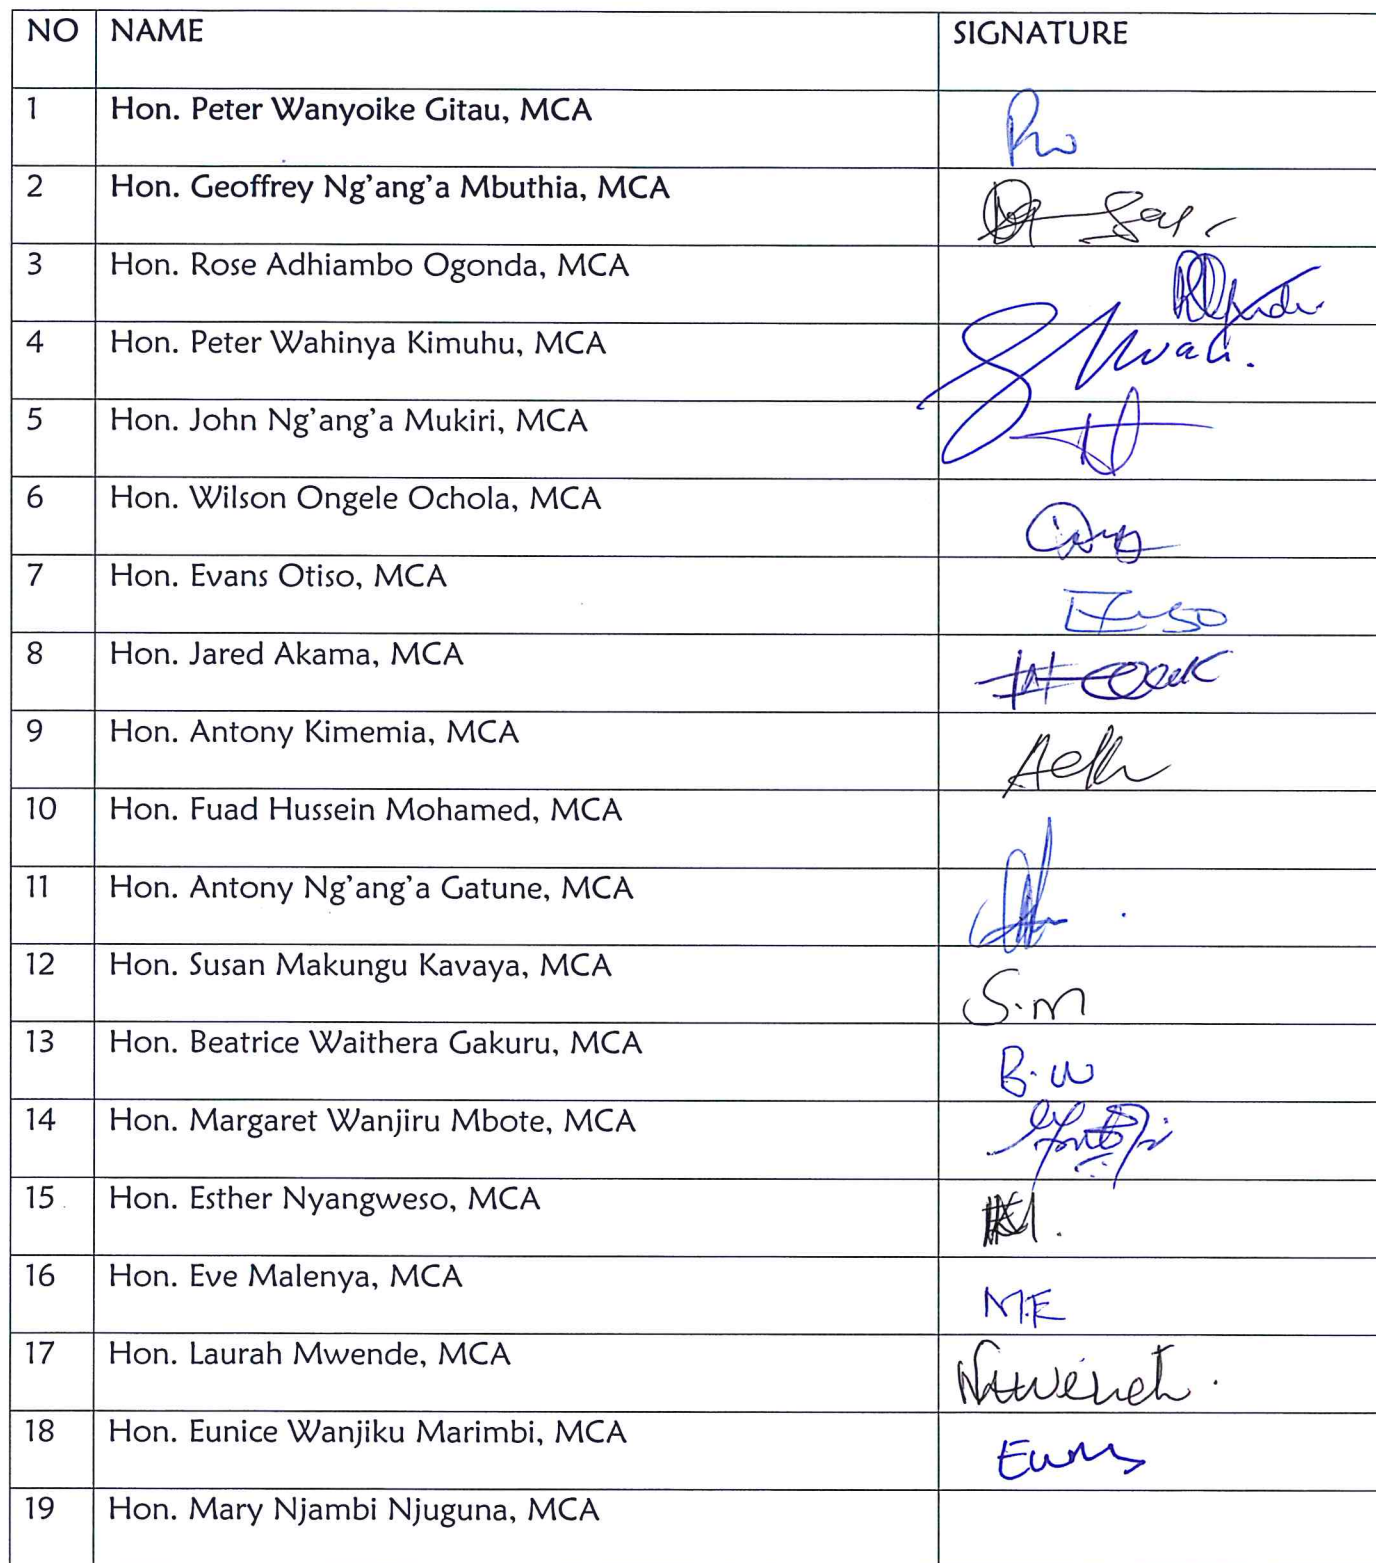 NO NAME SIGNATURE
1 Hon. Peter Wanyoike Gitau, MCA
2 Hon. Geoffrey Ng'ang'a Mbuthia, MCA
3 Hon. Rose Adhiambo Ogonda, MCA
4 Hon. Peter Wahinya Kimuhu, MCA
5 Hon. John Ng'ang'a Mukiri, MCA
6 Hon. Wilson Ongele Ochola, MCA
7 Hon. Evans Otiso, MCA
8 Hon. Jared Akama, MCA
9 Hon. Antony Kimemia, MCA
10 Hon. Fuad Hussein Mohamed, MCA
11 Hon. Antony Ng'ang'a Gatune, MCA
12 Hon. Susan Makungu Kavaya, MCA S.M
13 Hon. Beatrice Waithera Gakuru, MCA B.W
14 Hon. Margaret Wanjiru Mbote, MCA
15 Hon. Esther Nyangweso, MCA
16 Hon. Eve Malenya, MCA M.E
17 Hon. Laurah Mwende, MCA
18 Hon. Eunice Wanjiku Marimbi, MCA
19 Hon. Mary Njambi Njuguna, MCA